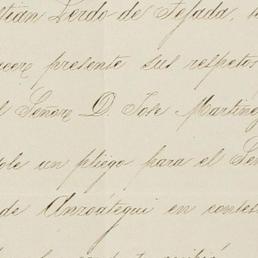 tian Lerdo de Tejada,
presente sus respetos
Señor D. José Martinez
ole un pliego para el Señ
de Anzoátegui en contes